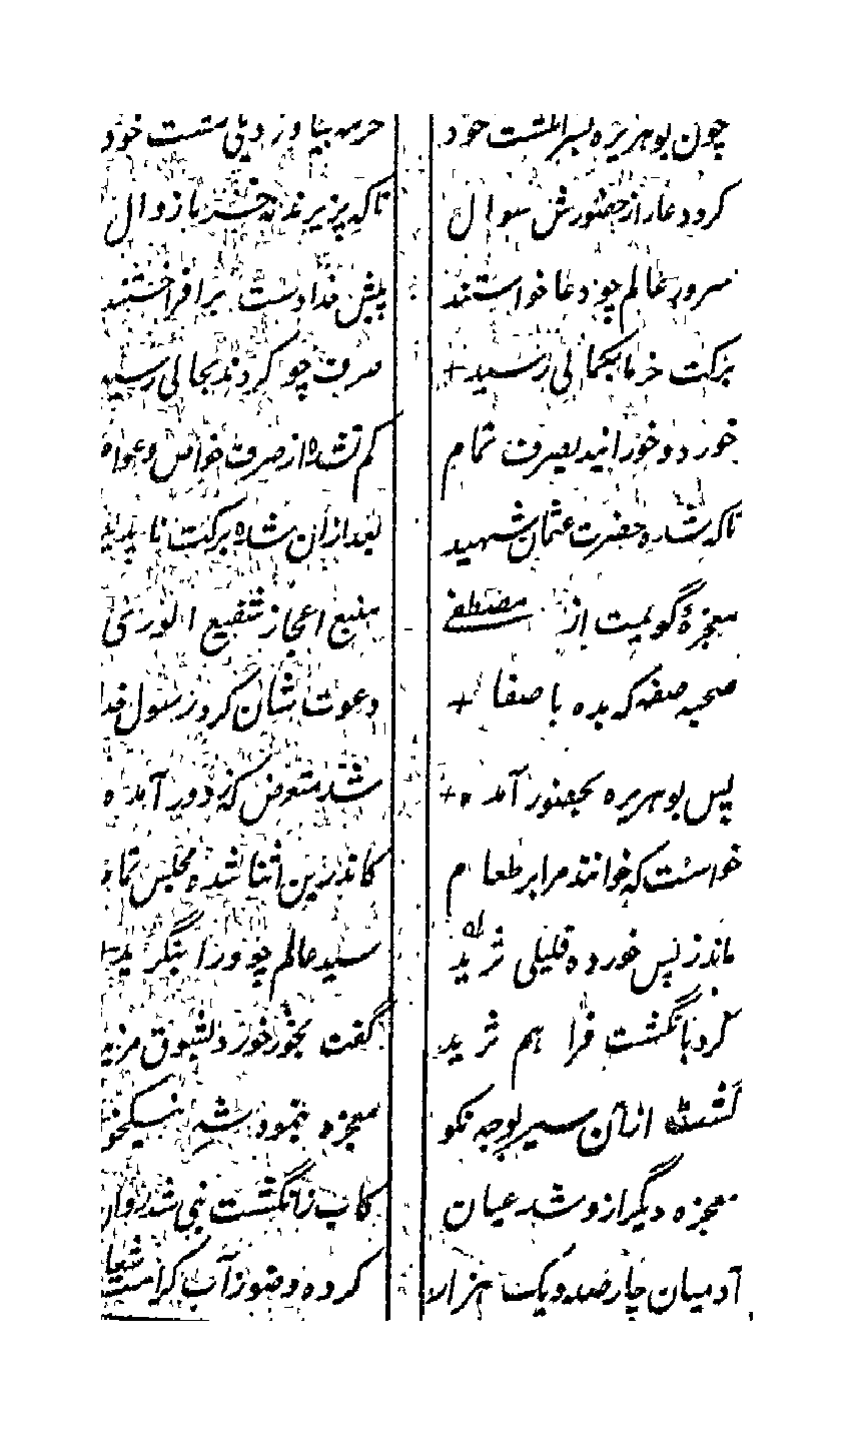 چون بوهریره بسر انگشت خود خرمه بیاورد پی مشت خود
کرد دعا از حضورش سوال تا که پزیرند نه خرما زوال
سرور عالم چو دعا خواستند پیش خدا دست برافراختند
برکت خرما بکمالی رسید + صرف چو کردند بجالی رسید
خورد و خورانید بصرف تمام کم نشده از صرف خواص و عوام
تا که شده حضرت عثمان شهید بعد ازان شد برکت ناپدید
معجزهٔ گویمت از مصطفے منبع اعجاز شفیع الوری
صحبه صفه که بده با صفا + دعوت شان کرد رسول خدا
پس بوهریره بحضور آمده + شد متعرض که ز دور آمده
خواست که خوانند مرا بر طعام کاندرین اثنا شده مجلس تمام
ماند ز پس خورده قلیلی ثرید سید عالم چو ورا بنگرید
کرد بانگشت فراهم ثرید گفت بخور خورد بشوق مزید
گشته ازان سیر بوجه نکو معجزه بنمود شه نیکخو
معجزه دیگر ازو شد عیان کاب ز انگشت نبی شد روان
آدمیان چار صد و یک هزار کرده وضو زآب کرامت شعار